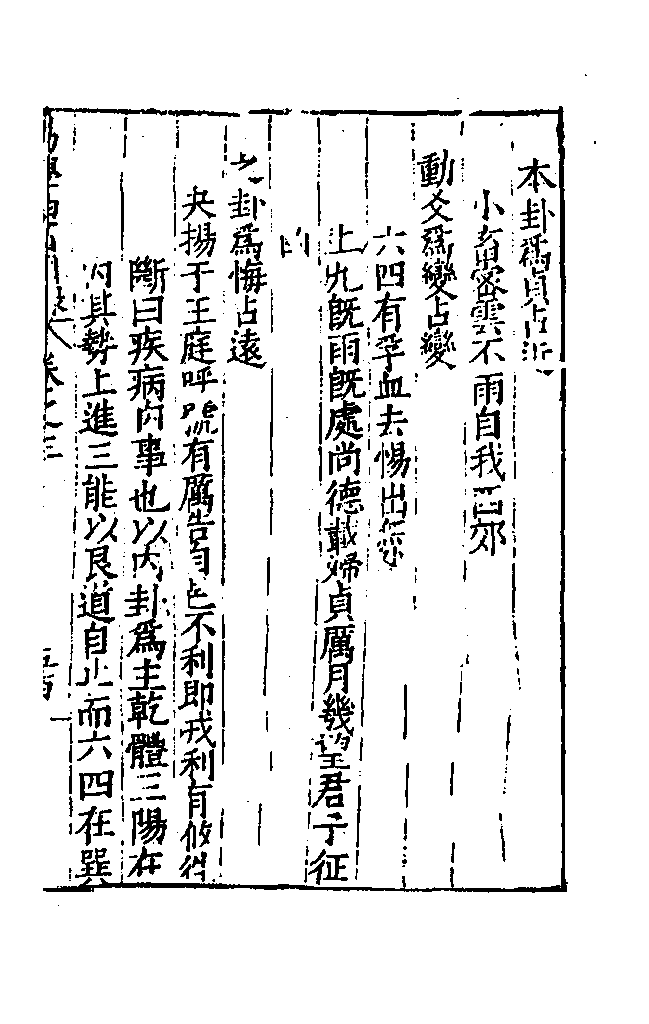 本卦爲貞占近
小畜密雲不雨自我西郊
動爻爲變占變
六四有孚血去惕出无
上九既雨既處尚德載婦貞厲月幾望君子征
凶
之卦爲悔占遠
夬揚于王庭呼號有厲告自邑不利即戎利有攸往
斷曰疾病內事也以內卦爲主乾體三陽在
內其勢上進三能以艮道自止而六四在巽
卷之三